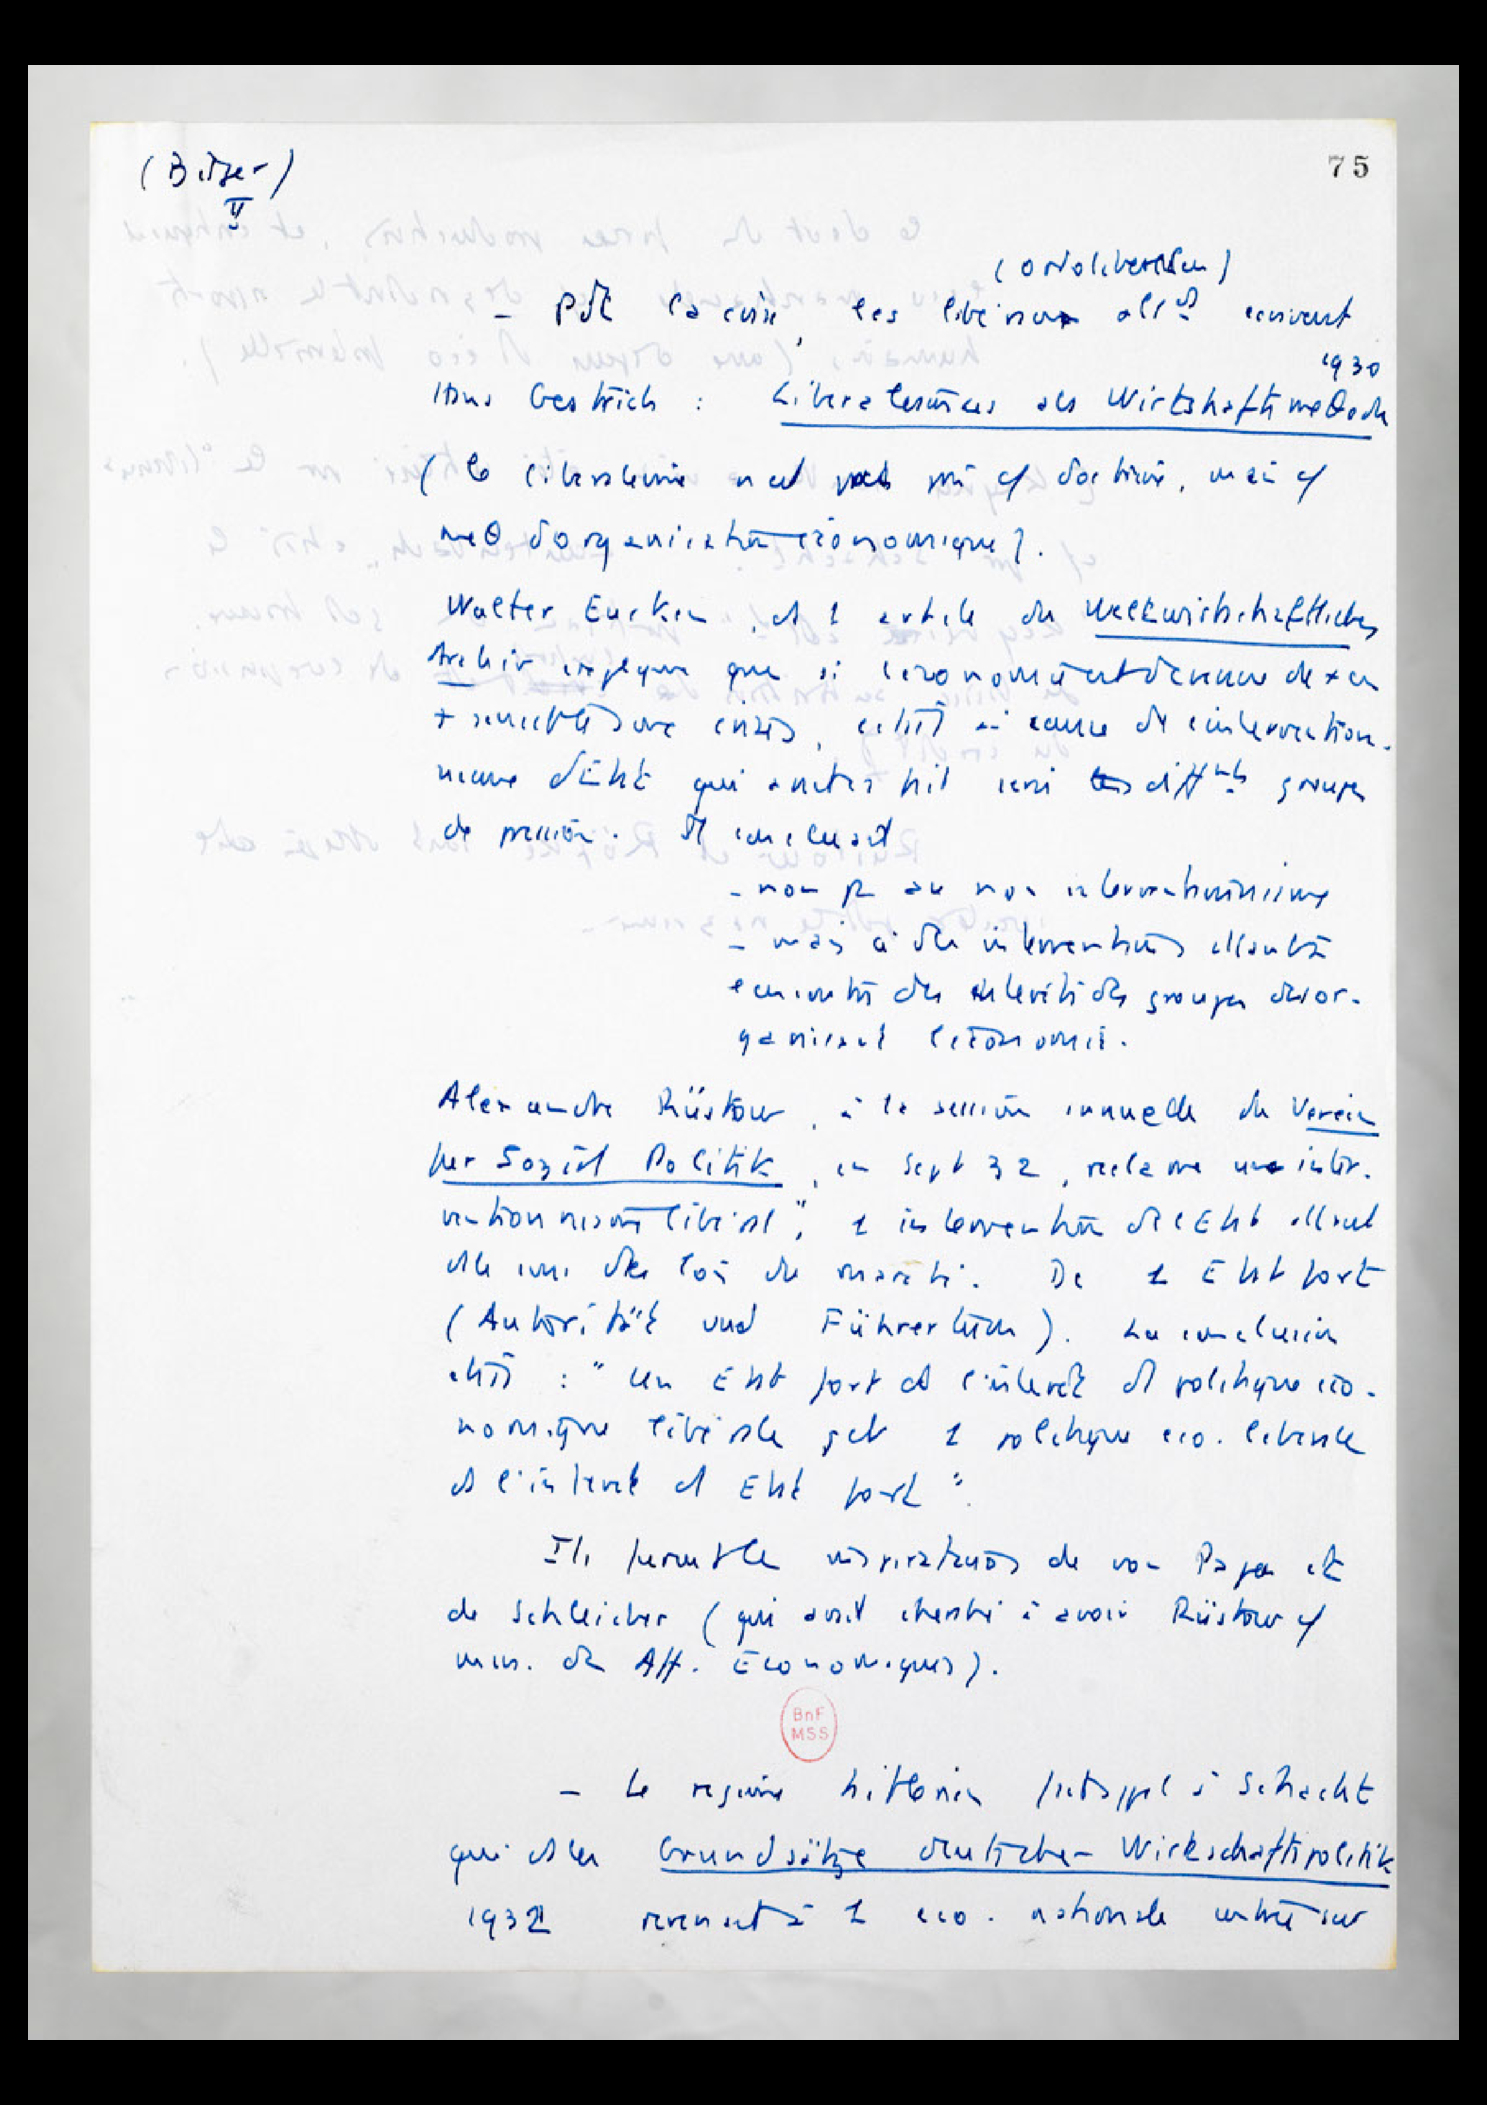 (Bilger)
II
75
(ordoliberalisme)
- Pdt la crise, les libéraux allds écrivent
1930
Hans Gestrich : Liberalismus als Wirtshaftsmethode
(le liberalisme n'est pas pris c/ doctrine, mais c/
meθ d'organisation économique).
Walter Eucken, ds 1 article du Weltwirtschaftliches
Archiv explique que si l'économie est devenue de + en
+ sensible aux crises, c'est à cause de l'intervention-
nisme d'Etat qui satisfait les diffnts groupes
de pression. Il concluait
- non pr au non interventionnisme
- mais à des interventions allant à
l'encontre des intérêts des groupes désor-
ganisant l'économie.
Alexandre Rüstow, à la session annuelle du Verein
für Sozial Politik, en sept 32, réclame un "inter-
ventionnisme libéral", 1 intervention de l'Etat allant
ds le sens des lois du marché. De 1 Etat fort
(Autorität und Führertum). La conclusion
était : "Un Etat fort ds l'intérêt d politique éco-
nomique libérale et 1 politique eco. libérale
ds l'intérêt d Etat fort".
Ils furent les inspirateurs de von Papen et
de Schleicher (qui avait cherché à avoir Rüstow c/
min. des Aff. Economiques).
BnF
MSS
- Le régime hitlérien fait appel à Schacht
qui ds les Grundsätze deutscher Wirtschaftspolitik
1932 revenait à 1 eco. nationale centrée sur